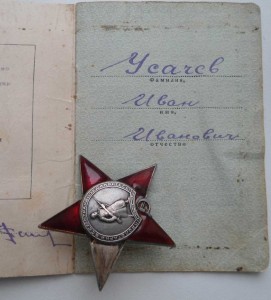 Усачев
фамилия,
Иван
имя,
Иванович
отчество